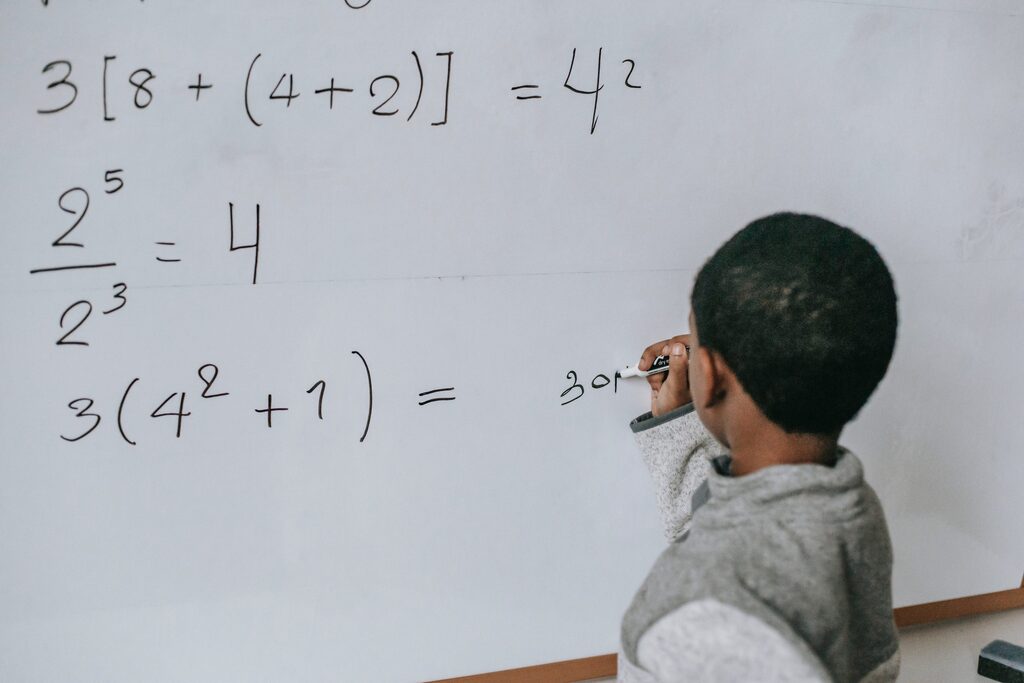 3[8 + (4 + 2)] = 4²
2⁵/2³ = 4
3(4² + 1) = 30